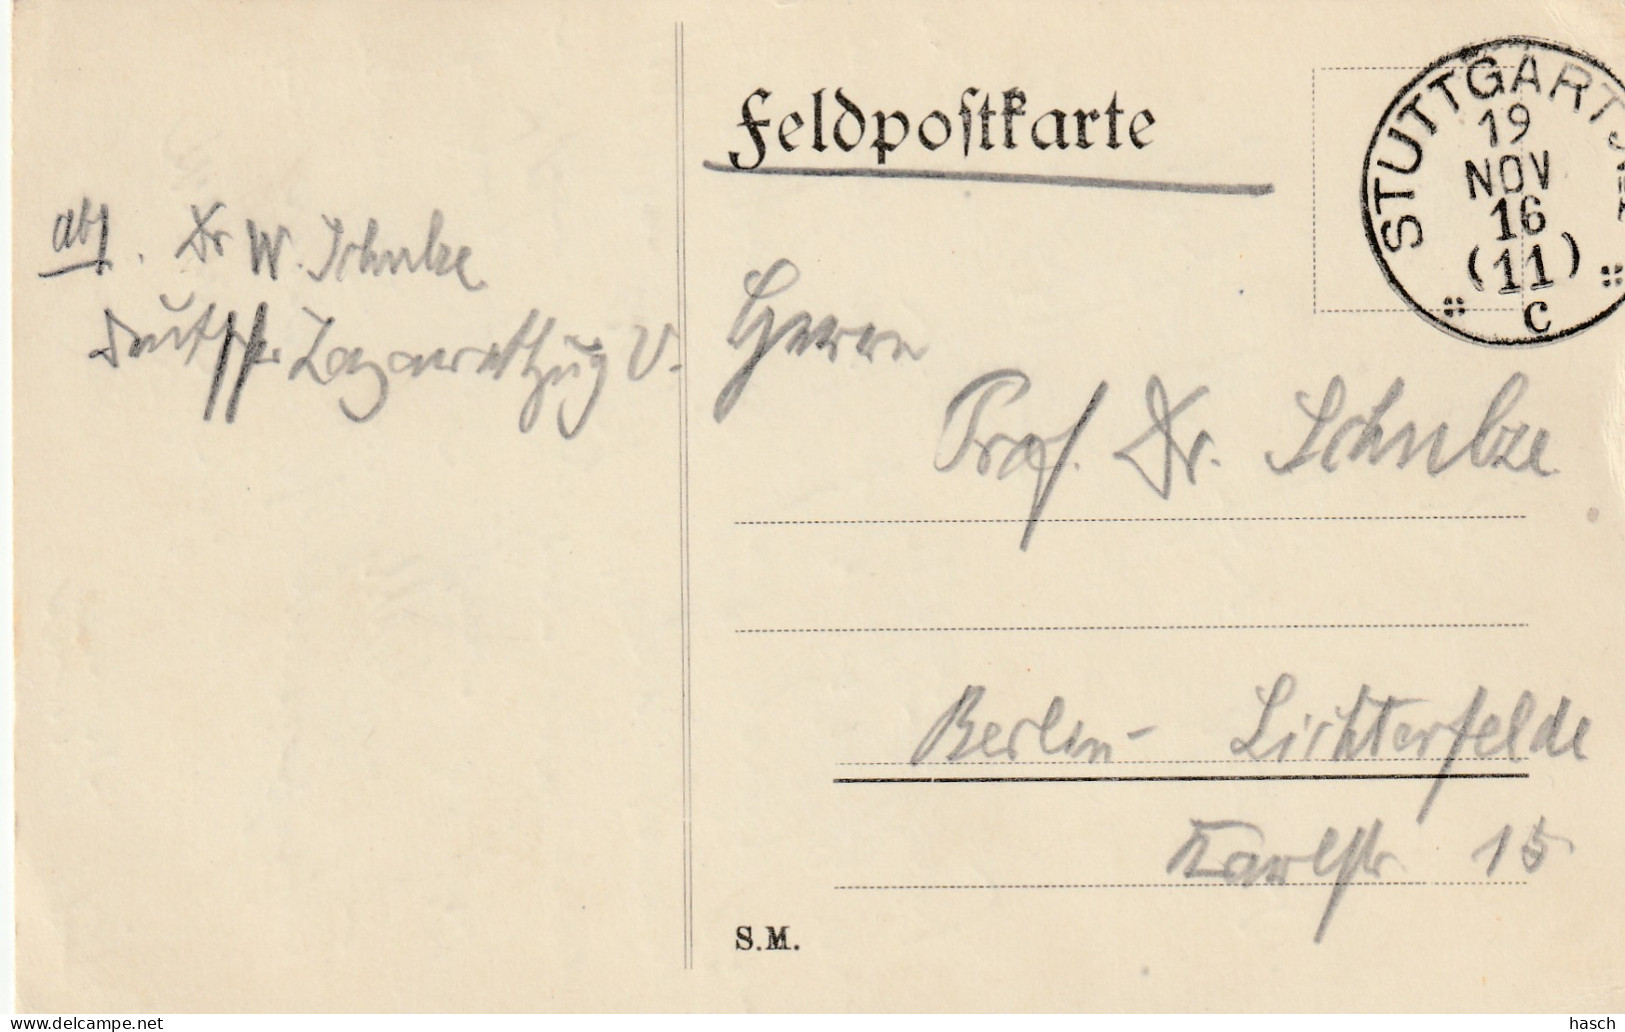 Feldpostkarte
STUTTGART
19
NOV
16
(11)
c
abs. Dr W. Schulze
Deutscher Lazarettzug V.
Herrn
Prof. Dr. Schulze
Berlin- Lichterfelde
Karlstr 15
S.M.
www.delcampe.net
hasch